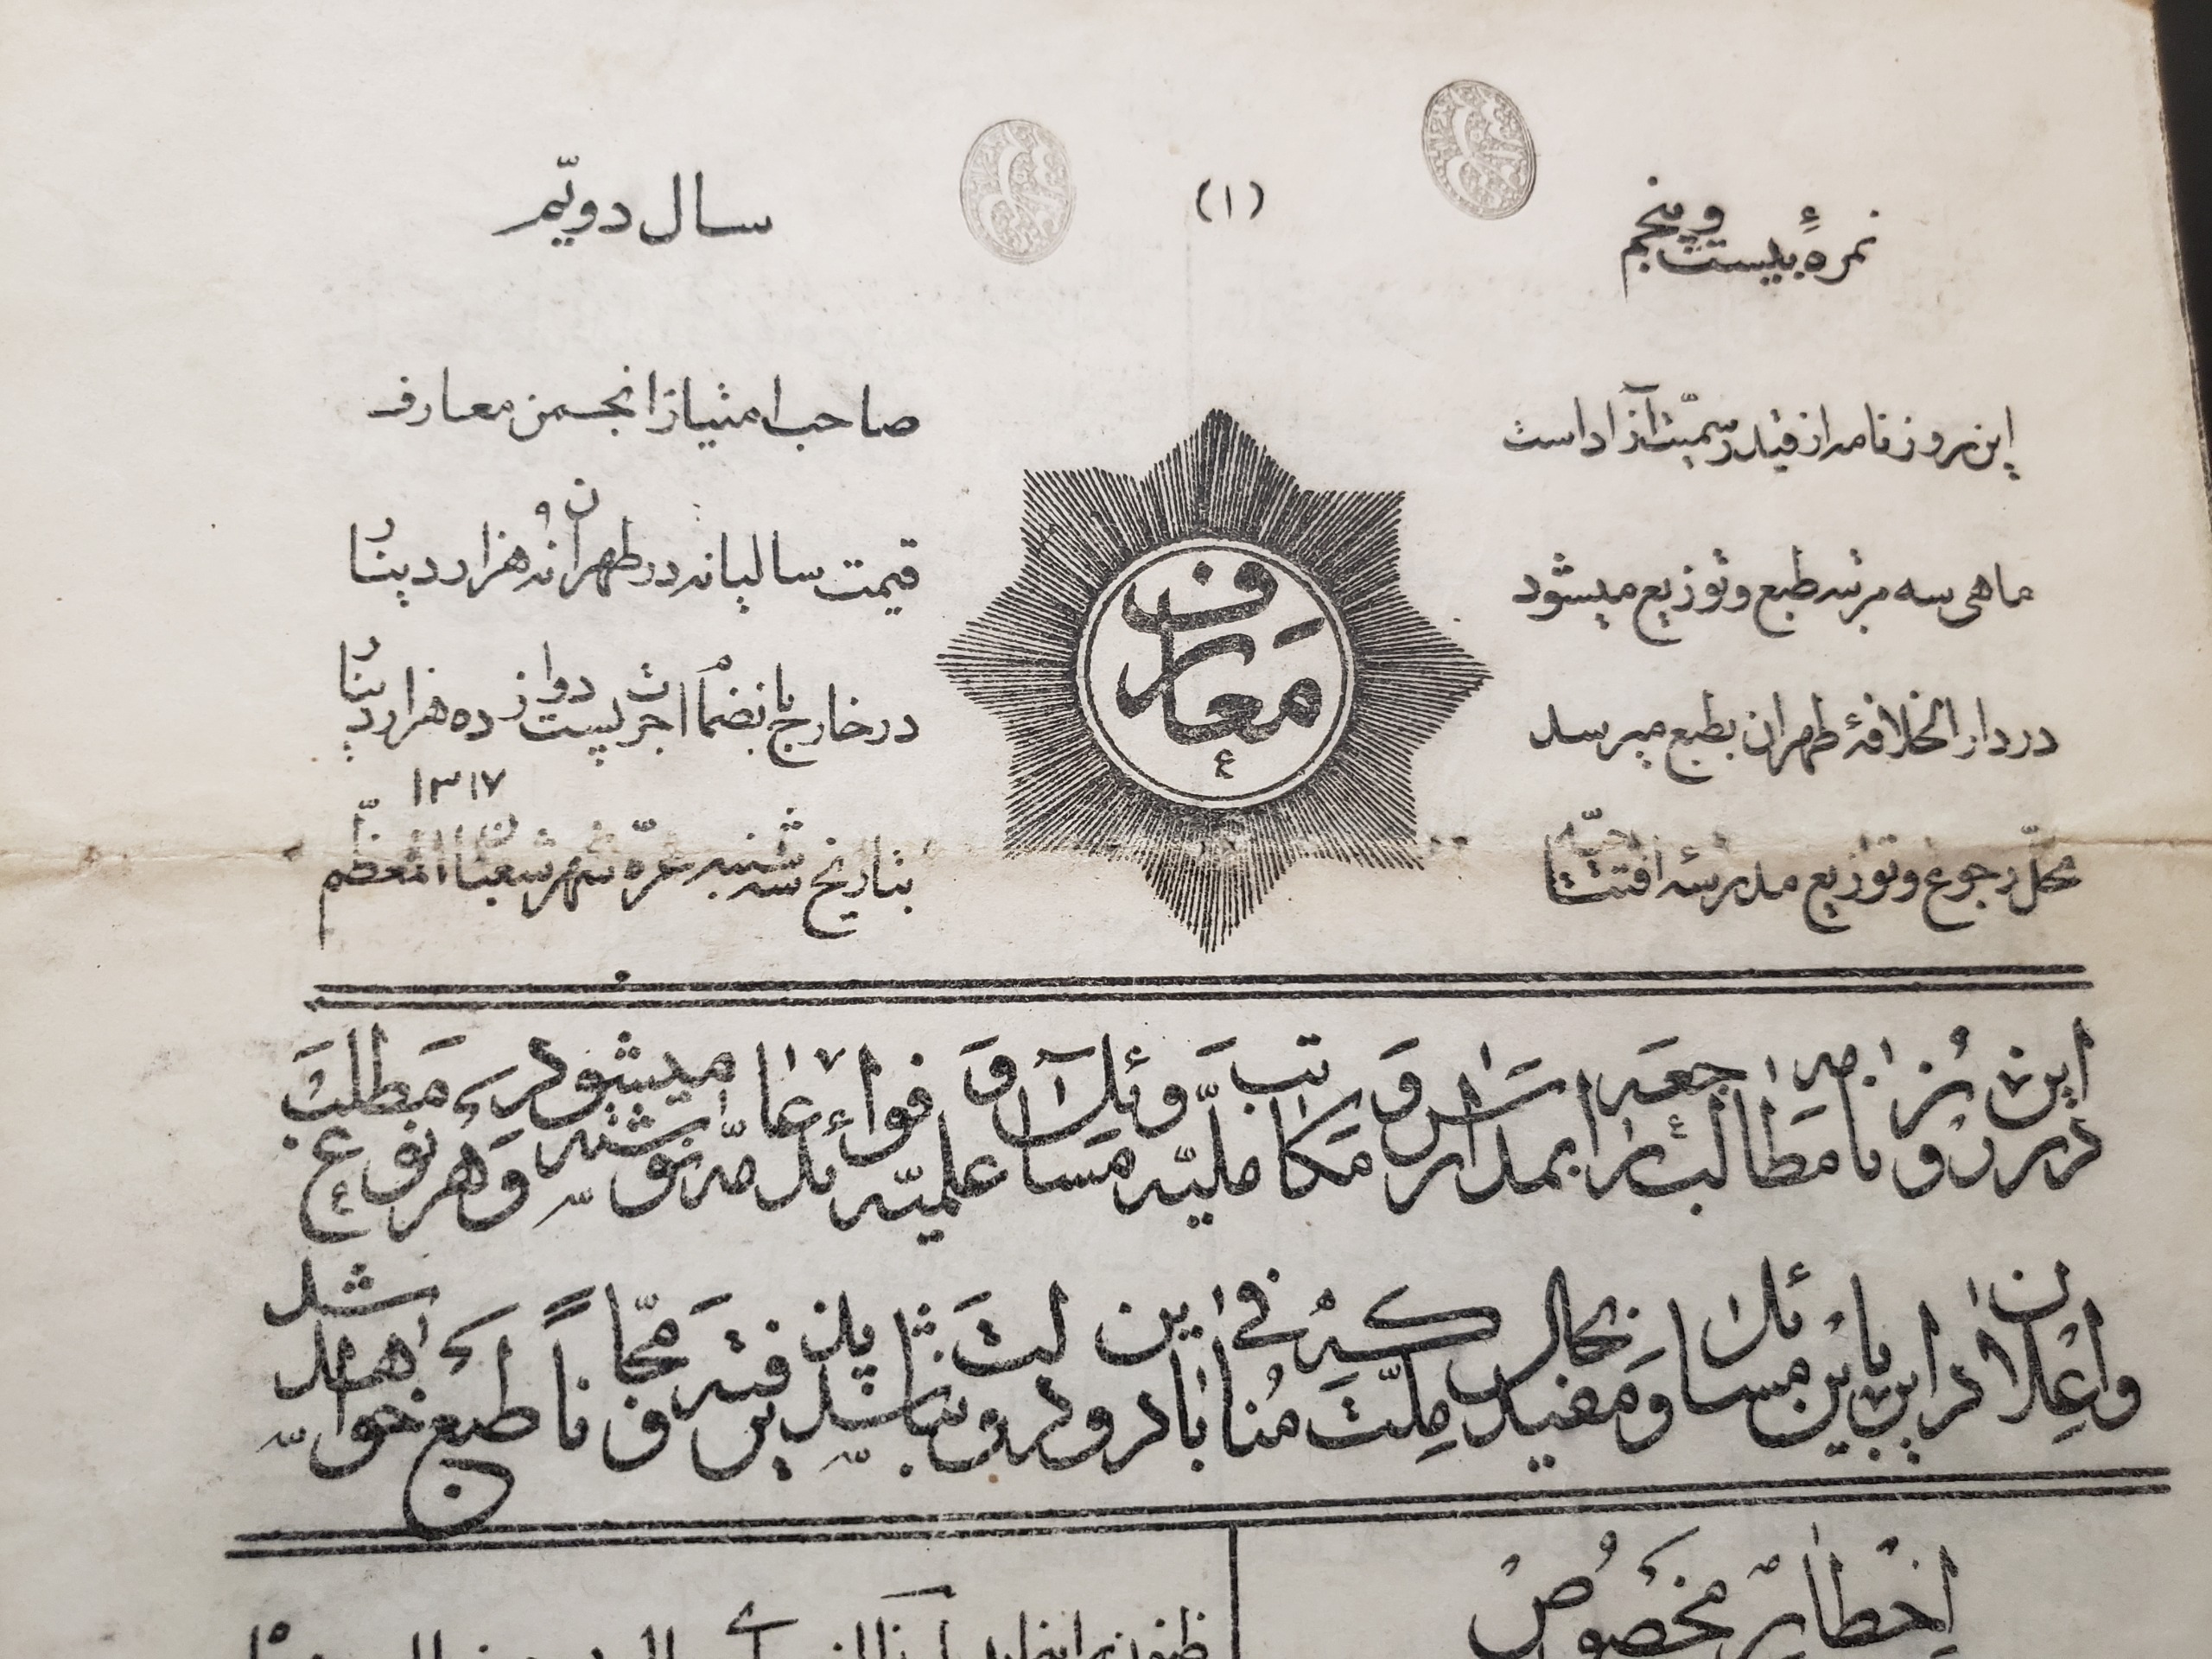 نمرهٔ بیست و پنجم
(۱)
سال دویّم
این روزنامه از قید رسمیّت آزاد است
ماهی سه مرتبه طبع و توزیع میشود
در دار الخلافهٔ طهران بطبع میرسد
محلّ رجوع و توزیع مدرسهٔ افتتاحیّه
معارف
۴
صاحب امتیاز انجمن معارف
قیمت سالیانه در طهران نه هزار دینار
در خارج بانضمام اجرت پست دوازده هزار دینار
بتاریخ سه شنبه غرّه شهر شعبان المعظّم ۱۳۱۷
در این روزنامه مطالب راجعه بمدارس و مکاتب ملیّه و مسائل علمیّه و فوائد عامّه نوشته میشود و هر نوع مطلب
و اعلان در این باب و مسائل مفید بحال ملت که منافی با این دولت و دین نباشد پذیرفته مجّاناً طبع خواهد شد
اخطار مخصوص